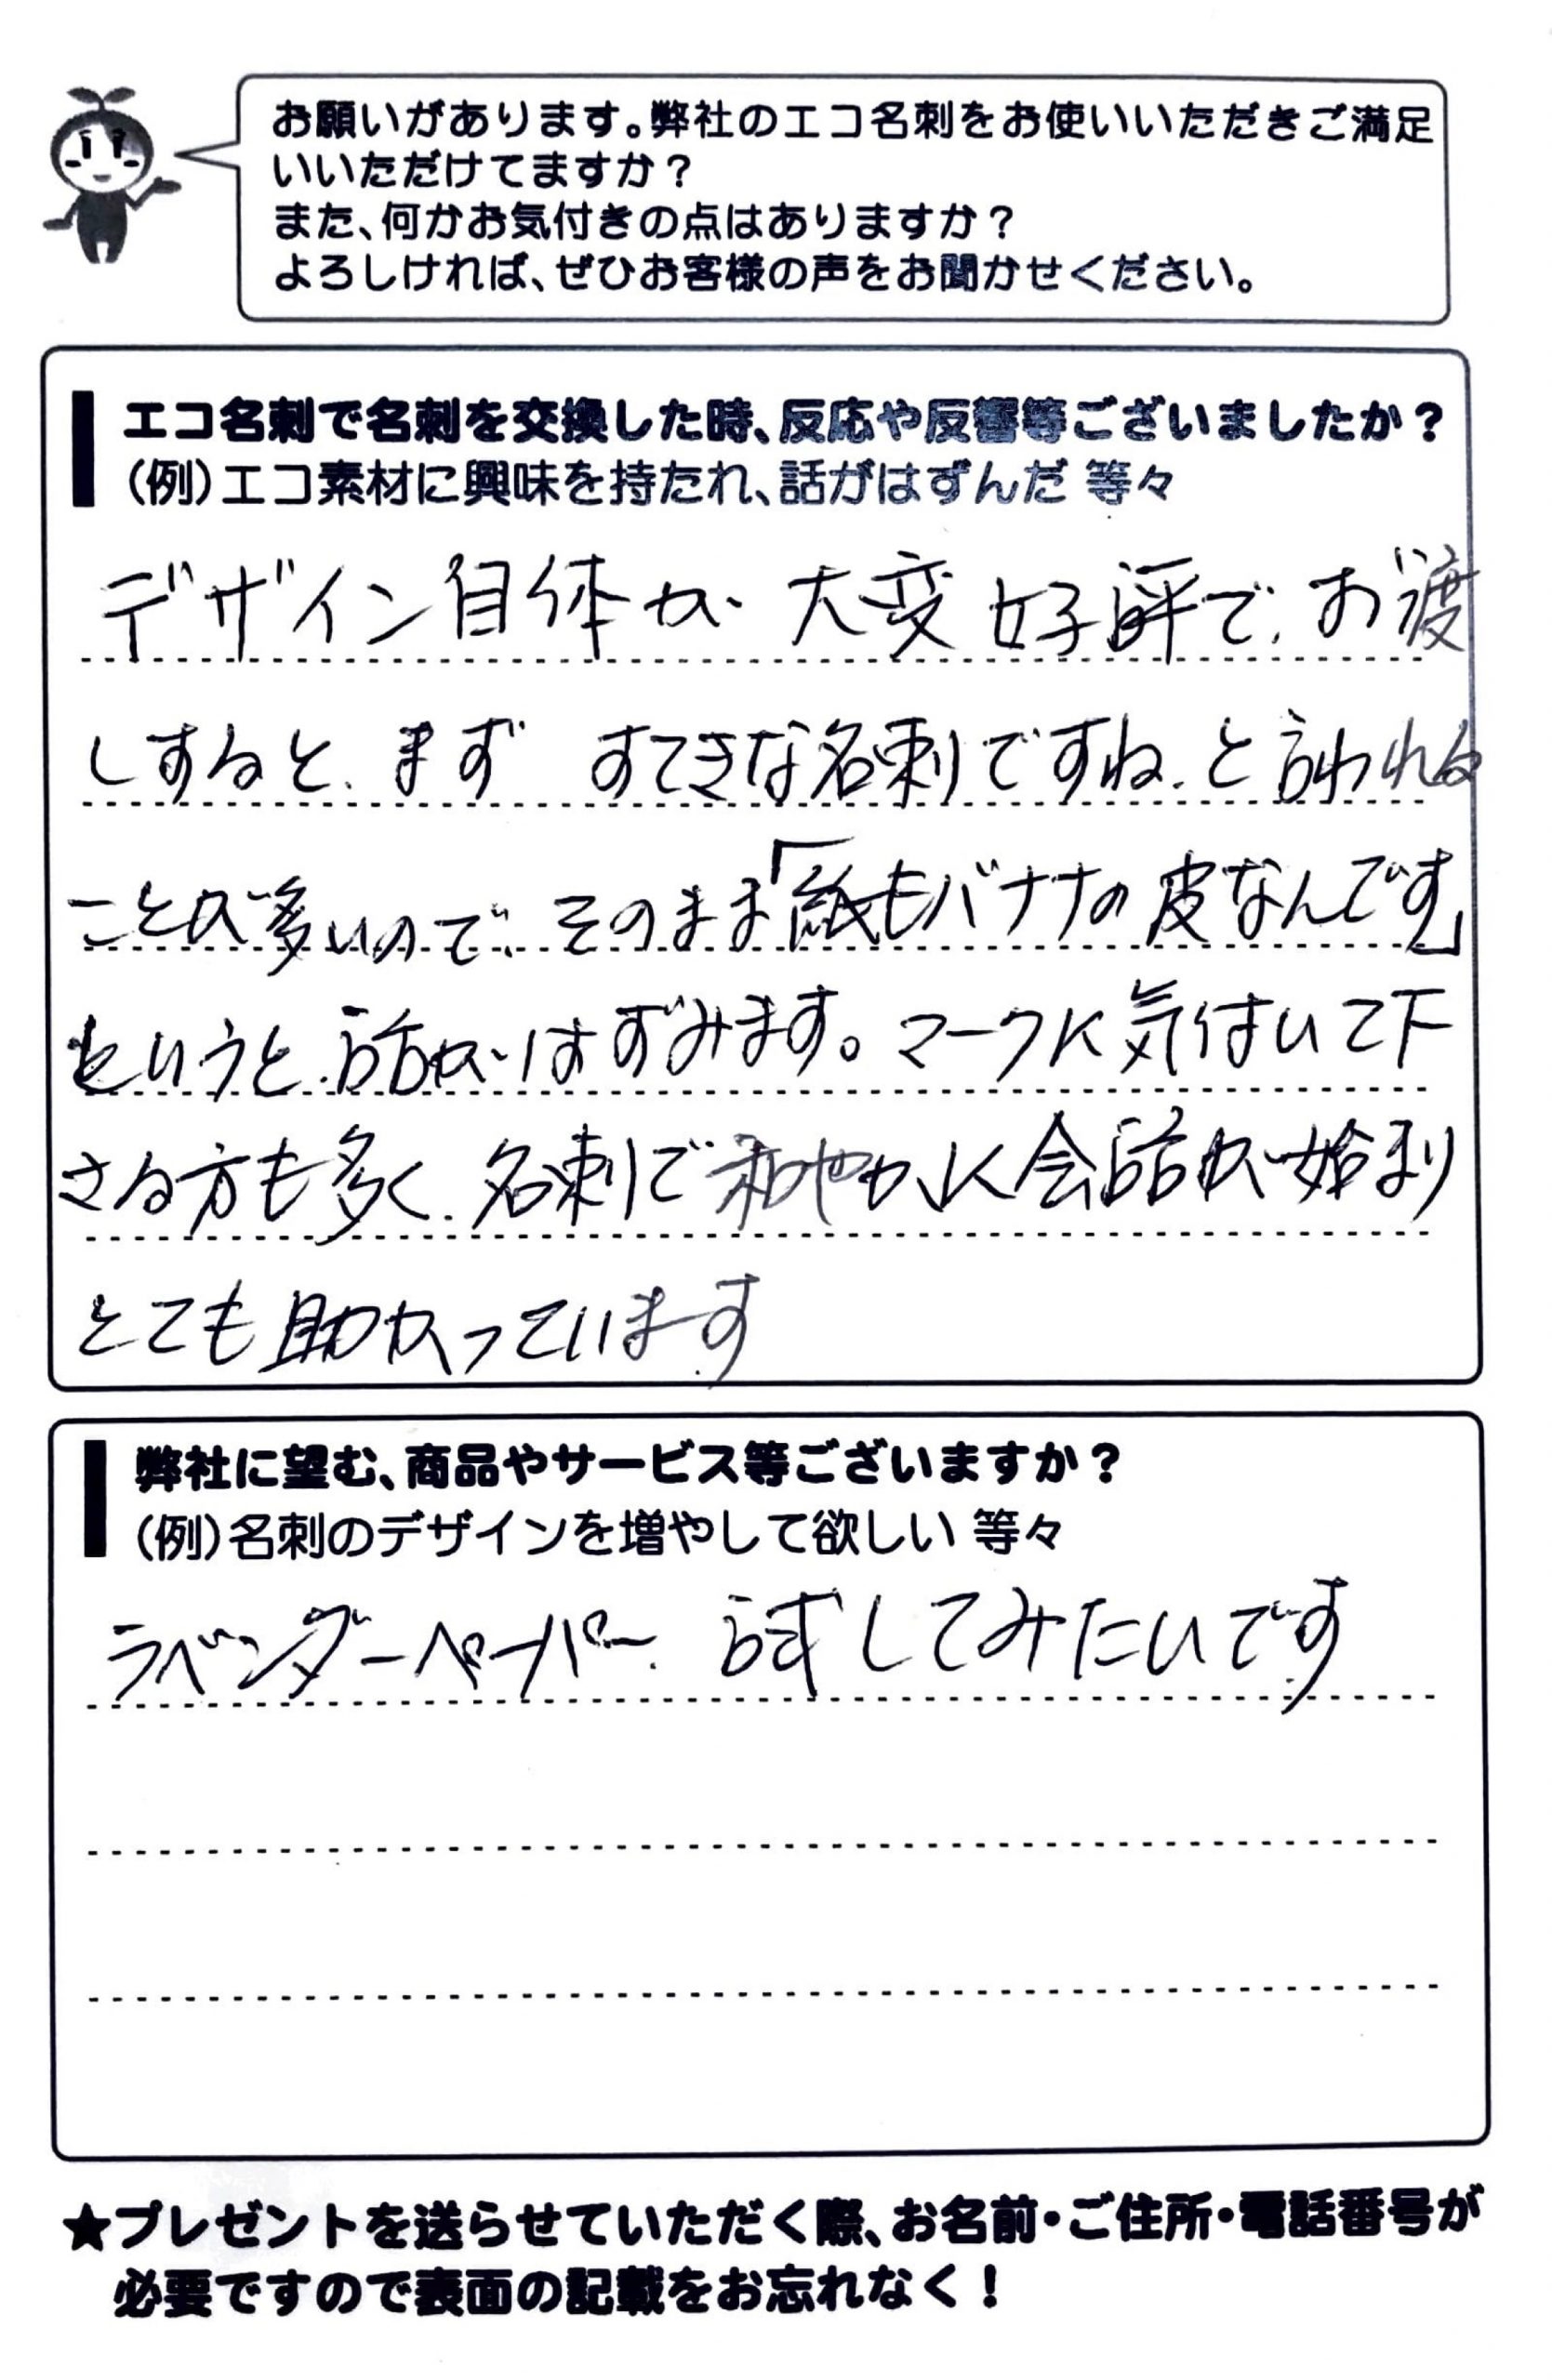 お願いがあります。弊社のエコ名刺をお使いいただきご満足
いいただけてますか？
また、何かお気付きの点はありますか？
よろしければ、ぜひお客様の声をお聞かせください。
エコ名刺で名刺を交換した時、反応や反響等ございましたか？
（例）エコ素材に興味を持たれ、話がはずんだ 等々
デザイン自体が 大変 好評で、お渡
しすると、まず すてきな名刺ですね、と言われる
ことが多いので、そのまま「紙もバナナの皮なんです」
というと、話がはずみます。マークに気付いて下
さる方も多く、名刺で和やかに会話が始まり
とても助かっています
弊社に望む、商品やサービス等ございますか？
（例）名刺のデザインを増やして欲しい 等々
ラベンダーペーパー、試してみたいです
★プレゼントを送らせていただく際、お名前・ご住所・電話番号が
必要ですので表面の記載をお忘れなく！